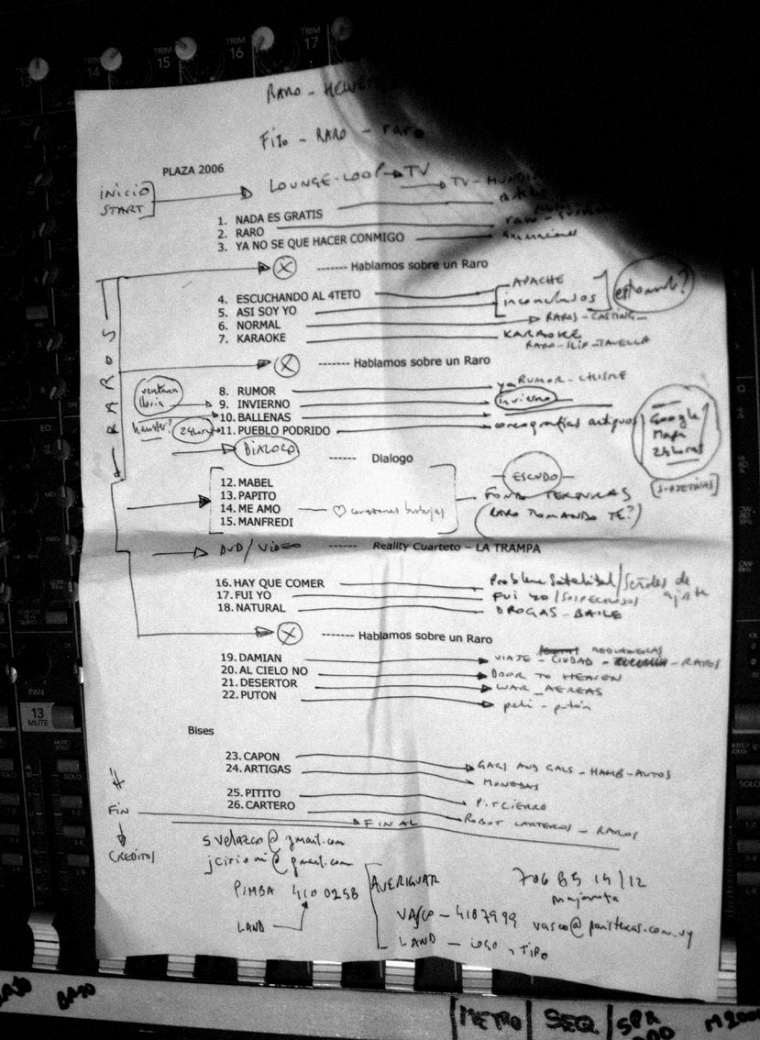 TRIM
14
TRIM
15
TRIM
16
TRIM
17
RARO - HELVETI
FIJO - RARO - raro
PLAZA 2006
INICIO START → LOUNGE-LOOP → TV → TV - MUNDI
1. NADA ES GRATIS
2. RARO
3. YA NO SE QUE HACER CONMIGO animaciones
X ------- Hablamos sobre un Raro
RAROS
4. ESCUCHANDO AL 4TETO APACHE
5. ASI SOY YO
6. NORMAL RAROS - CASTING
7. KARAOKE KARAOKE
X ------- Hablamos sobre un Raro
8. RUMOR RUMOR - CHISME
ventana lluvia 9. INVIERNO invierno
10. BALLENAS
24horas 11. PUEBLO PODRIDO coreografías antiguos
Google Maps 24horas
DIALOGO ------ Dialogo
12. MABEL ESCUDO
13. PAPITO
14. ME AMO ♡ corazones burbujas
15. MANFREDI (RARO TOMANDO TÉ?)
DVD/VIDEO ------- Reality Cuarteto – LA TRAMPA
16. HAY QUE COMER Problema Satelital/Señales de ajuste
17. FUI YO FUI YO/SOSPECHOSOS
18. NATURAL DROGAS - BAILE
X ------- Hablamos sobre un Raro
19. DAMIAN VIAJE - CIUDAD - RAROS
20. AL CIELO NO DOOR TO HEAVEN
21. DESERTOR WAR_AEREAS
22. PUTON peli - putón
Bises
23. CAPON GAGS AND GALS - HAMB - AUTOS
24. ARTIGAS MONEDAS
25. PITITO PITCIERRO
26. CARTERO ROBOT CARTEROS - RAROS
FIN
FINAL
CREDITOS
svelazco@gmail.com
@gmail.com
PIMBA 4100258
LAND
AVERIGUAR
VASCO - 4187999
LAND - LOGO, TIPO
706 85 14/12
PAN
13
MUTE
SOLO
BAJO
METRO
SEQ
SPR